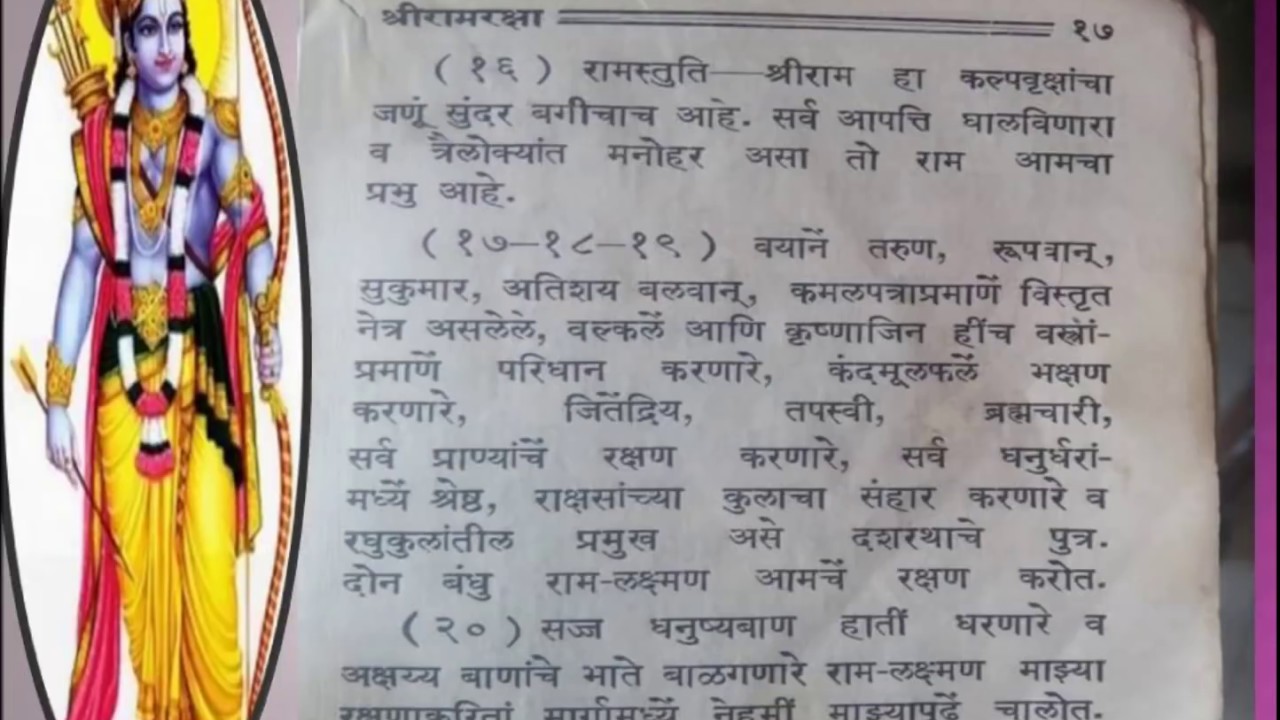 श्रीरामरक्षा १७
(१६) रामस्तुति—श्रीराम हा कल्पवृक्षांचा
जणूं सुंदर बगीचाच आहे. सर्व आपत्ति घालविणारा
व त्रैलोक्यांत मनोहर असा तो राम आमचा
प्रभु आहे.
(१७–१८–१९) वयानें तरुण, रूपवान्,
सुकुमार, अतिशय बलवान्, कमलपत्राप्रमाणें विस्तृत
नेत्र असलेले, वल्कलें आणि कृष्णाजिन हींच वस्त्रां-
प्रमाणें परिधान करणारे, कंदमूलफलें भक्षण
करणारे, जितेंद्रिय, तपस्वी, ब्रह्मचारी,
सर्व प्राण्यांचें रक्षण करणारे, सर्व धनुर्धरां-
मध्यें श्रेष्ठ, राक्षसांच्या कुलाचा संहार करणारे व
रघुकुलांतील प्रमुख असे दशरथाचे पुत्र.
दोन बंधु राम-लक्ष्मण आमचें रक्षण करोत.
(२०) सज्ज धनुष्यबाण हातीं धरणारे व
अक्षय्य बाणांचे भाते बाळगणारे राम-लक्ष्मण माझ्या
रक्षणाकरितां मार्गामध्यें नेहमीं माझ्यापुढें चालोत.